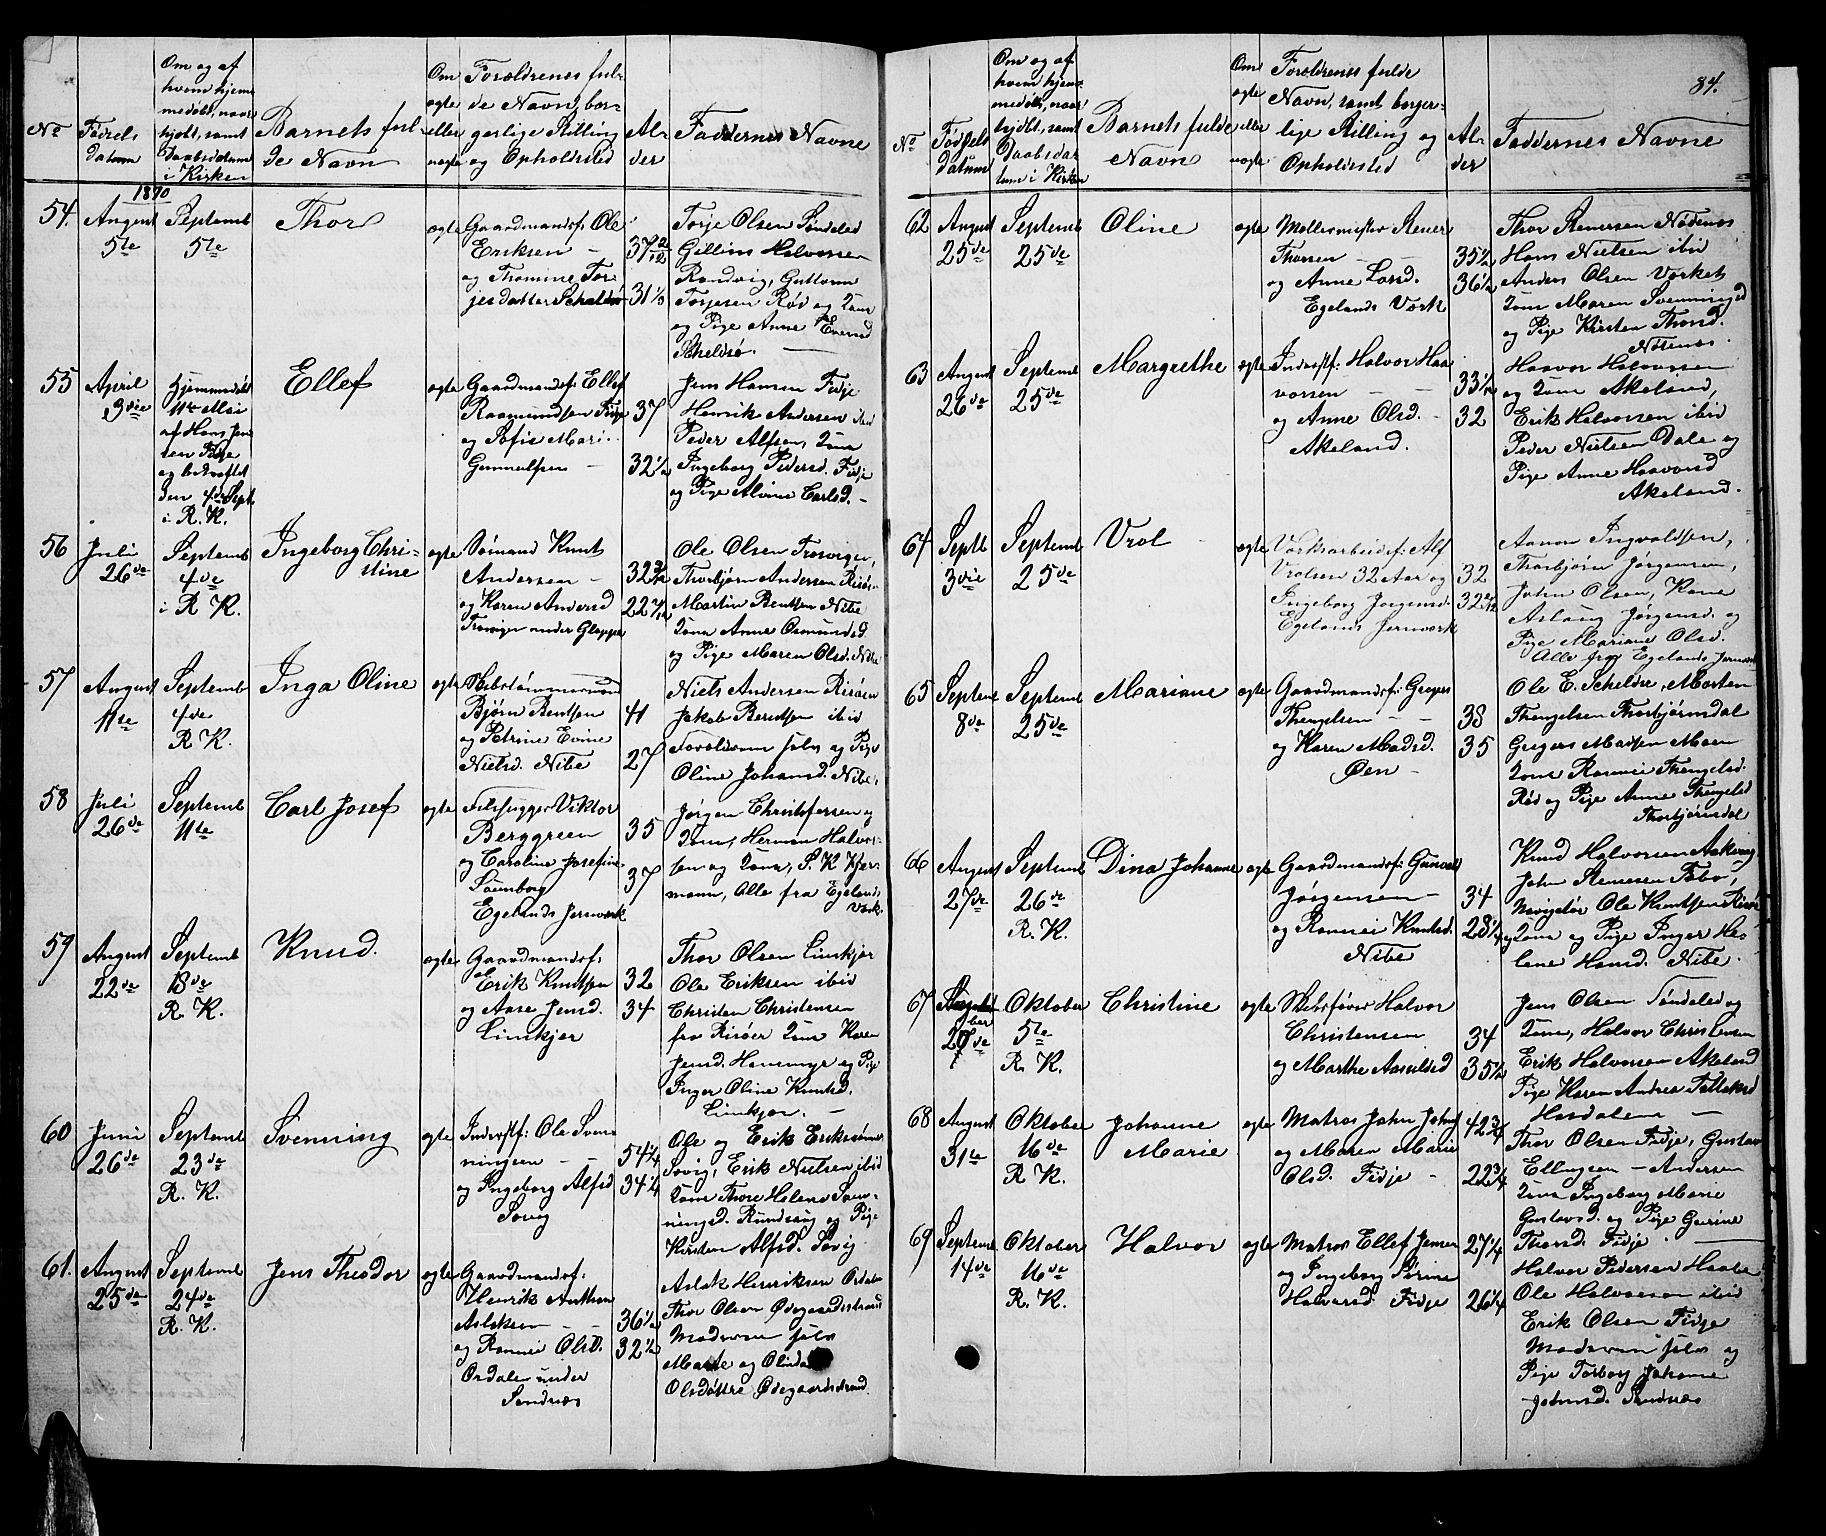 84.
No
Fødsels
datum
Om og af
hvem hjem-
medøbt, naar
hjdbt, samt
Daabsdatum
i Kirken
Barnets ful-
de Navn
Om
ægte
eller
uægte
Forældrenes ful-
de Navn, bor-
gerlige Stilling
og Opholdssted
Al-
der
Faddernes Navne
1870
54.
August
5te
Septemb
5te
Thor
ægte
Gaardmandsf: Ole
Eriksen -
og Tromine Tor-
jesdatter Skeldsø
31 1/3
Torje Olsen Søndeled
Gillius Halvorsen
Randvig, Guttorm
Torjesen Rød og Kone
og Pige Anne Evensd
Skeldsø.
55
April
3die
Hjemmedøbt
11te Mai
af Hans Jen
sen Fidje
og bekræftet
den 4de Sept
i R. K.
Ellef
ægte
Gaardmandsf: Ellef
Rasmundsen Fidje
og Sofie Marie
Gunnulfsen -
37
32 1/2
Jens Hansen Fidje
Henrik Andersen ibid
Peder Alfsen, Kone
Ingeborg Pedersd. Fidje
og Pige Alvine Carlsd. -
56
Juli
26de
Septemb
4de
i R. K.
Ingeborg Chri-
stine
ægte
Sømand Knut
Andersen -
og Karen Andersd
Trosvigen under Gloppe
Ole Olsen Trosvigen,
Thorbjørn Andersen Risør.
Martin Bentsen Nibe
Kone Anne Osmundsd.
og Pige Maren Olsd. Nibe
57
August
11te
Septemb
4de
R. K.
Inga Oline
ægte
Skibstømmermand
Bjørn Bentsen
og Petrine Evine
Nielsd. Nibe
41
27
Niels Andersen Risøen
Jakob Berntsen ibid
Forældrene selv og Pige
Oline Johansd. Nibe.
58
Juli
26de
Septemb
11te
Carl Josef
ægte
Filehugger Viktor
Berggreen
og Caroline Josefine
Egelands Jernværk
35
37
Jørgen Christofersen og
Kone, Herman Halvor-
sen og Kone, S. K. Kjær-
mann, Alle fra Egelands
Værk.
59
August
22de
Septemb
18de
R. K.
Knud.
ægte
Gaardmandsf:
Erik Knutsen
og Aase Jensd.
Limkjer
32
34
Thor Olsen Limkjer
Ole Eriksen ibid
Christen Christensen
fra Risøer Kone Karen
Jensd. Hanemyr og Pige
Inger Oline Knutsd.
Limkjer. -
60
Juni
26de
Septemb
23de
R. K.
Svenning
ægte
Inderstf: Ole Sven-
ningsen -
og Ingeborg Alfsd
Sørig
54 1/4
34 1/4
Ole og Erik Erikssønner
Sørig, Erik Nielsen ibid
Kone Thore Helene Sven-
ningsd. Rundsaug og Pige
Kirsten Alfsd. Sørig
61.
August
25de
Septemb
24de
R. K.
Jens Theodor
ægte
Gaardmandsf:
Henrik Anthon
Aslaksen -
og Ronnei Olsd.
Ordalen under
Sandnæs
36 1/2
32 1/2
Aslak Henriksen Ordalen
Thor Olsen Ødegaardsstrand
Moderen selv
Marte og Olinda
Olsdøttre Ødegaardsstrand.
No
Fødsels
datum
Om og af
hvem hjem-
medøbt, naar
hjdbt, samt
Daabsda-
tum i Kirken
Barnets fulde
Navn
Om
ægte
eller
uægte
Forældrenes fulde
Navn, samt borger-
lige Stilling og
Opholdssted
Al-
der
Faddernes Navne
62
August
25de
Septemb
25de
Oline
ægte
Møllermester Stener
Thorsen - -
og Anne Larsd.
Egelands Værk
35 1/2
36 1/2
Thor Stenersen Nødenæs
Hans Nielsen ibid
Anders Olsen Værket
Kone Maren Svenningsd
og Pige Kirsten Thorsd.
Nødenæs.
63
August
26de
Septemb
25de
Margrethe
ægte
Inderstf: Halvor Haa-
vorsen -
og Anne Olsd. -
Akeland.
32
Haavor Halvorsen
og Kone Akeland,
Erik Halvorsen ibid
Peder Nielsen Dale og
Pige Anne Haavorsd
Akeland.
64
Septb
3die
Septemb
25de
Vrol
ægte
Værksarbeidsf: Alf
Vrolsen 32 Aar og
Ingeborg Jørgensd.
Egelands Jernværk
32
Aanon Ingvaldsen,
Thorbjørn Jørgensen,
John Olsen, Kone
Aslaug Jørgensd. og
Pige Mariane Olsd.
Alle fra Egelands Jernværk
65
Septemb
8de
Septemb
25de
Mariane
ægte
Gaardmandsf: Gregers
Thengelsen - -
og Karen Madsd.
Øen -
38
35
Ole E. Skeldsø, Morten
Thengelsen Thorbjørnsdal
Gregers Madsen Moen
Kone Ronnei Thengelsd.
Rød og Pige Anne Thengelsd
Thorbjørnsdal
66
August
27de
Septemb
26de
R. K.
Dina Johanne
ægte
Gaardmandsf: Gunvald
Jørgensen -
og Ronnei Knutsd.
Nibe
34
28 1/4
Knud Halvorsen Aakvaag
John Stenersen Fabø,
Navigatør Ole Knutsen Risør
og Kone og Pige Inger He-
lene Hansd. Nibe.
67
Septem-
ber
20de
Oktober
5te
R. K.
Christine
ægte
Skibsfører Halvor
Christensen
og Marthe Aasuldsd
34
35 1/2
Jens Olsen Søndeled og
Kone, Halvor Christensen
Erik Halvorsen Akeland
Pige Karen Andrea Tallaksd
Hasdalen -
68
August
31te
Oktober
16de
R. K.
Johanne
Marie
ægte
Matros John John
og Maren Marie
Olsd. Fidje -
42 3/4
22 3/4
Thor Olsen Fidje, Gustav
Ellingsen - Andersen
Kone Ingeborg Marie
Gustavsd. og Pige Gurine
Thorsd. Fidje. -
69
Septemb
14de
Oktober
16de
R. K.
Halvor
ægte
Matros Ellef Jensen
og Ingeborg Sørine
Halvorsd. Fidje
27 1/4
26 1/4
Halvor Pedersen Haabe
Ole Halvorsen ibid
Erik Olsen Fidje
Moderen selv og
Pige Torborg Johanne
Johnsd. Sandnæs